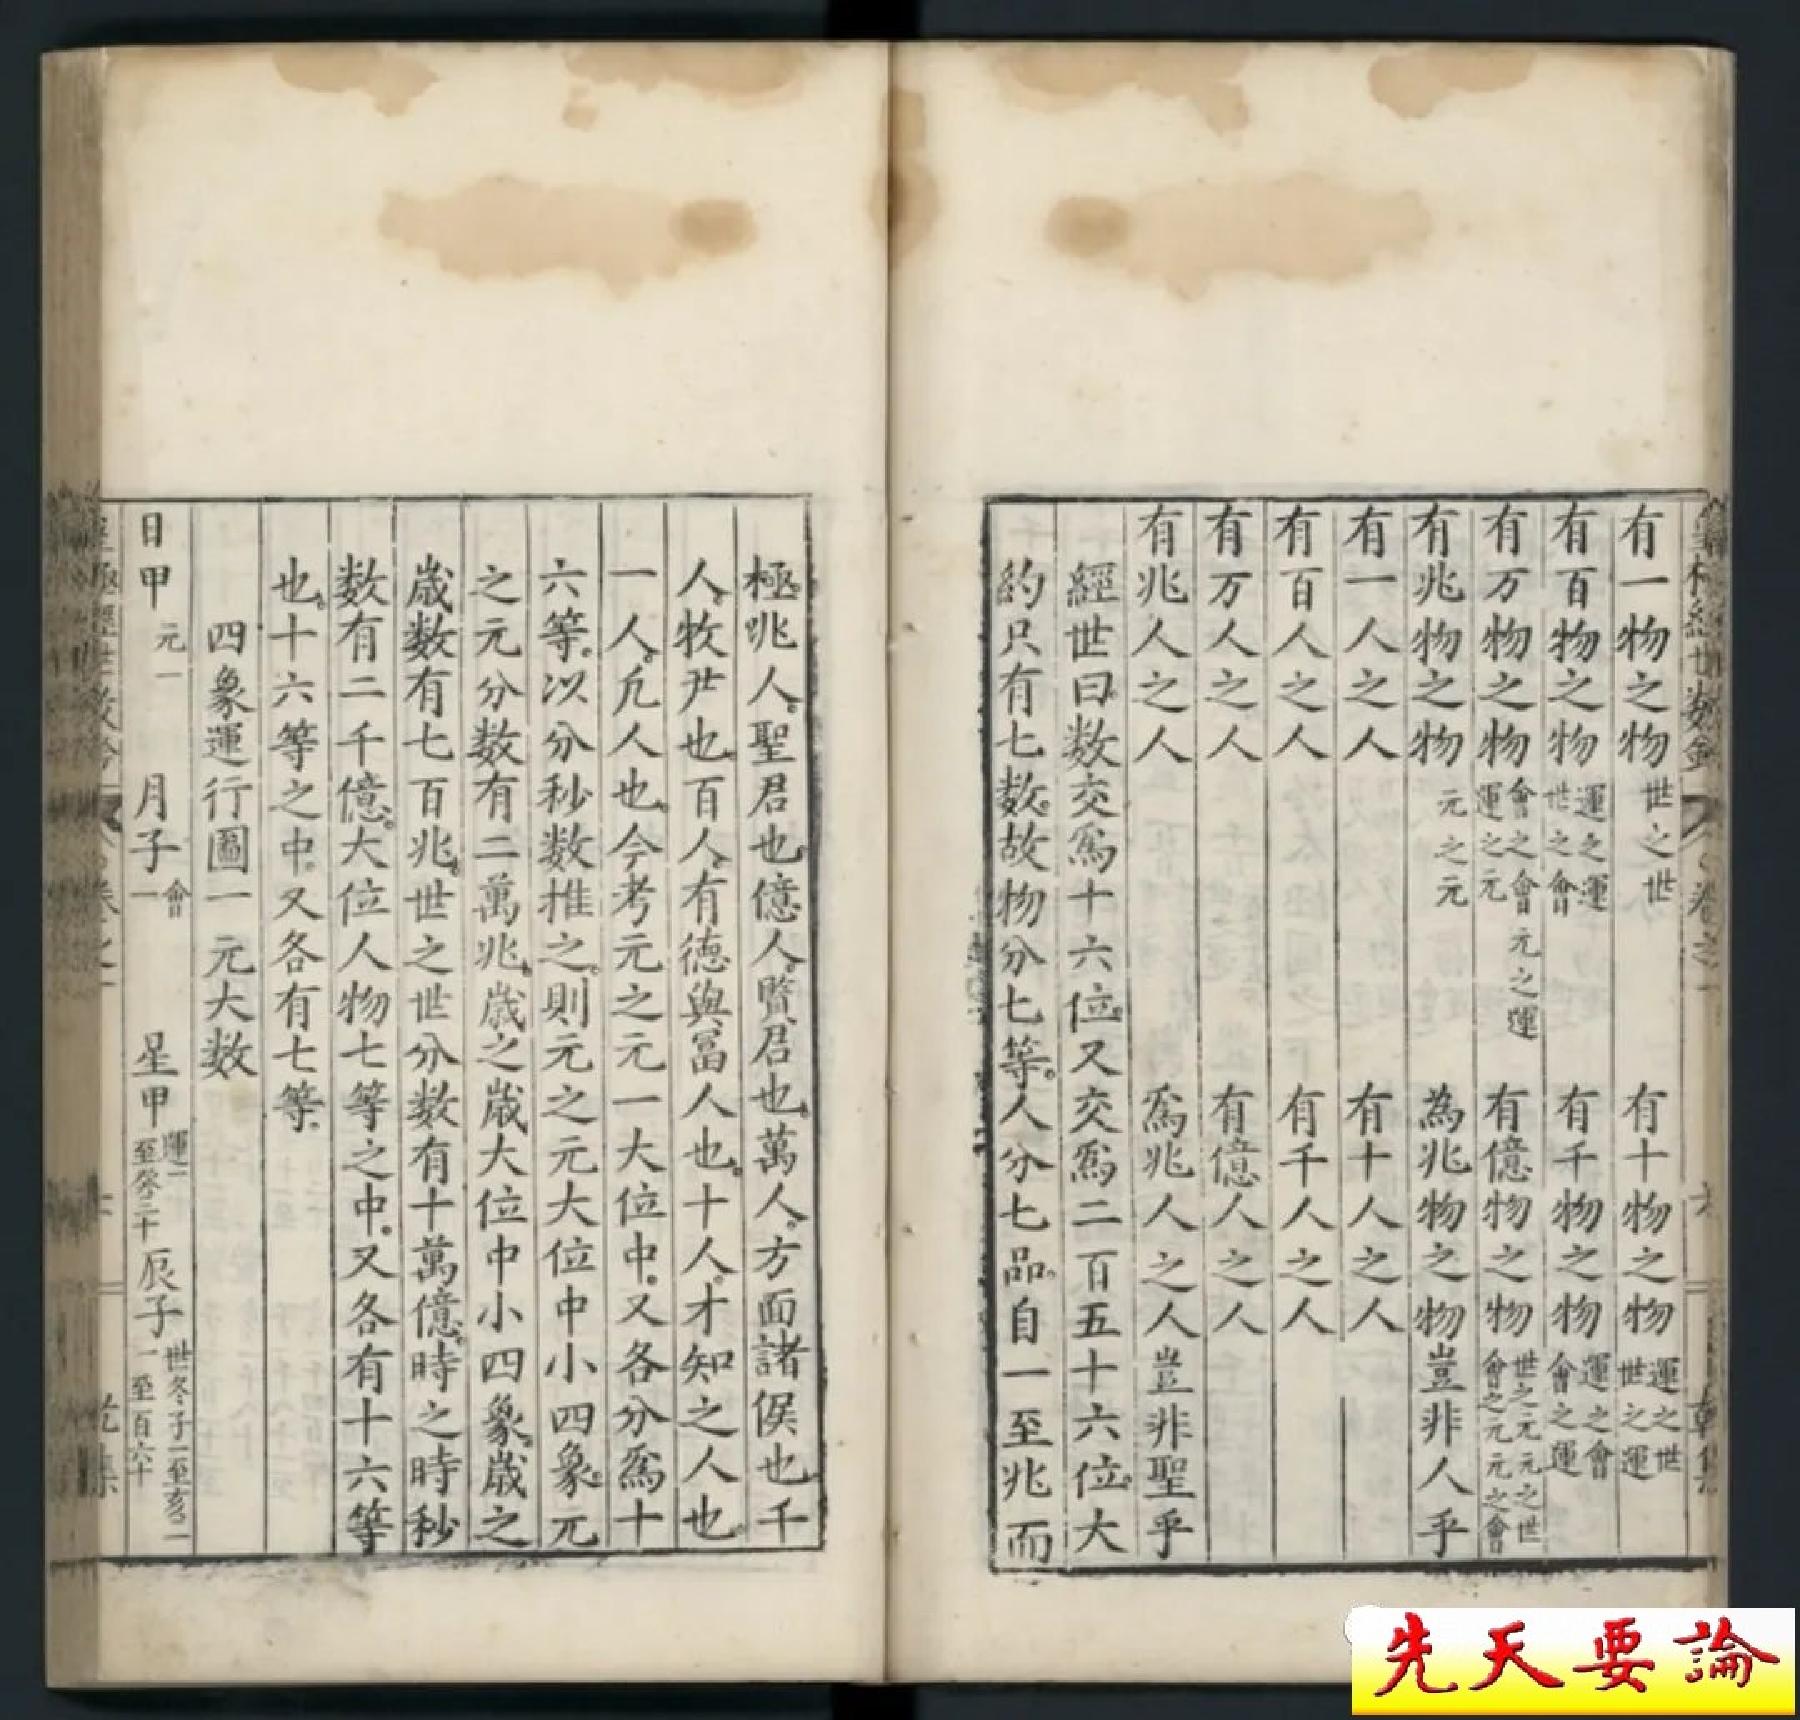 有一物之物 世之世 有十物之物 運之世 世之運
有百物之物 運之運 世之會 有千物之物 運之會 會之運
有万物之物 會之會 運之元 元之運 有億物之物 世之元 元之世 會之元 元之會
有兆物之物 元之元 為兆物之物豈非人乎
有一人之人 有十人之人
有百人之人 有千人之人
有万人之人 有億人之人
有兆人之人 爲兆人之人豈非聖乎
經世曰数交爲十六位又交爲二百五十六位大
約只有七数故物分七等人分七品自一至兆而
極兆人聖君也億人賢君也萬人方面諸侯也千
人牧尹也百人有德與富人也十人才知之人也
一人凢人也今考元之元一大位中又各分爲十
六等以分秒数推之則元之元大位中小四象元
之元分数有二萬兆歲之歲大位中小四象歲之
歲数有七百兆世之世分数有十萬億時之時秒
数有二千億大位人物七等之中又各有十六等
也十六等之中又各有七等
四象運行圖一元大数
日甲 元一 月子 會一 星甲 運一至癸三十 辰子 世冬子一至亥二一至百六十
先天要論